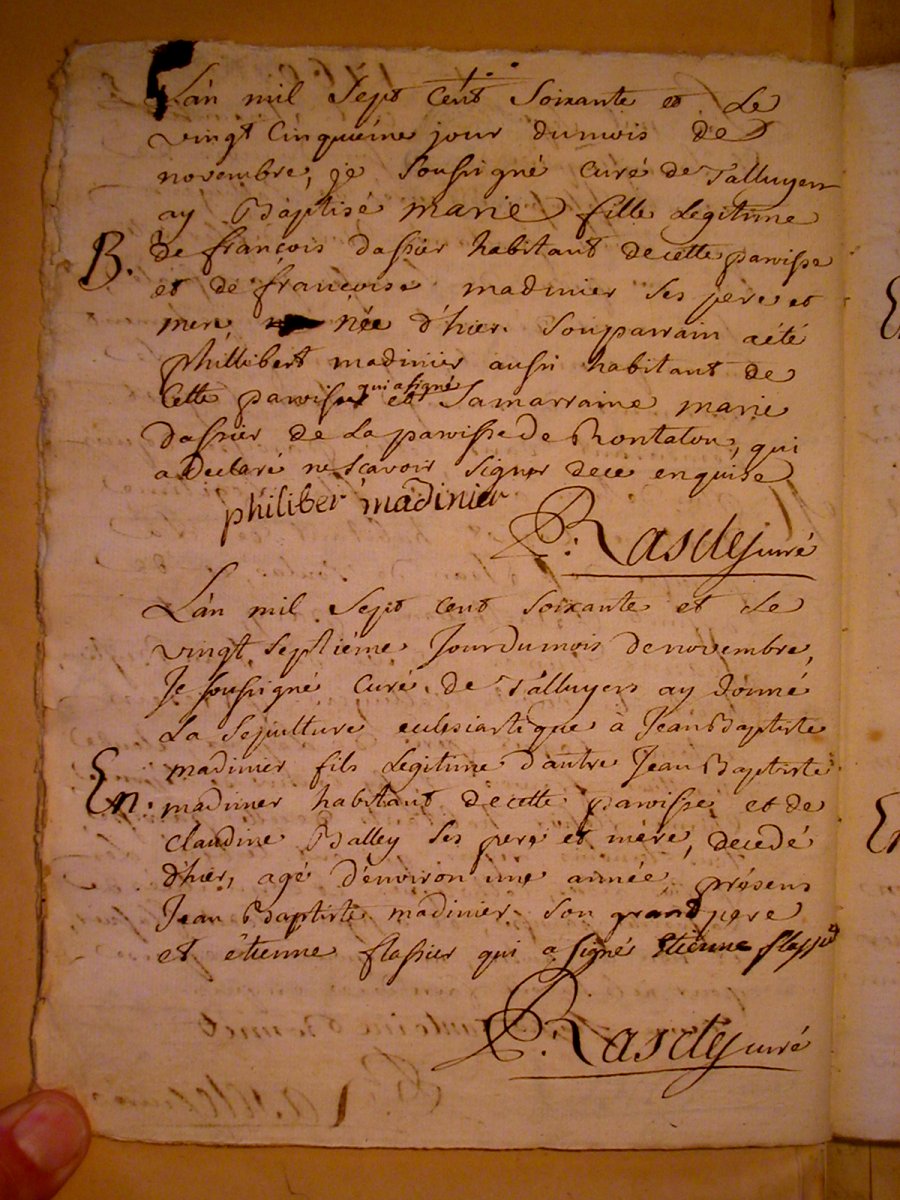 L'an mil Sept Cent Soixante et Le
vingt Cinquiéme jour du mois de
novembre, je Soussigné Curé de Talluyers
ay Baptisé marie fille Legitime
B. de françois dassier habitant de cette paroisse
et de françoise madinier ses pere et
mere, née d'hier. Son parrain a été
phillibert madinier aussi habitant de
Cette paroisse qui a signé et Sa marraine marie
dassier de La paroisse de Rontalon, qui
a declaré ne sçavoir signer de ce enquise
philiber madinier
P. Rasdey curé
L'an mil Sept cent soixante et Le
vingt septiéme Jour du mois de novembre,
Je soussigné Curé de Talluyers ay donné
La Sepulture eclesiastique à Jean Baptiste
madinier fils Legitime d'autre Jean Baptiste
En. madinier habitant de cette paroisse et de
claudine Balley ses pere et mère, decedé
d'hier, agé d'environ une année, présens
Jean Baptiste madinier son grand pere
et étienne flassier qui a signé étienne
P. Rasdey curé